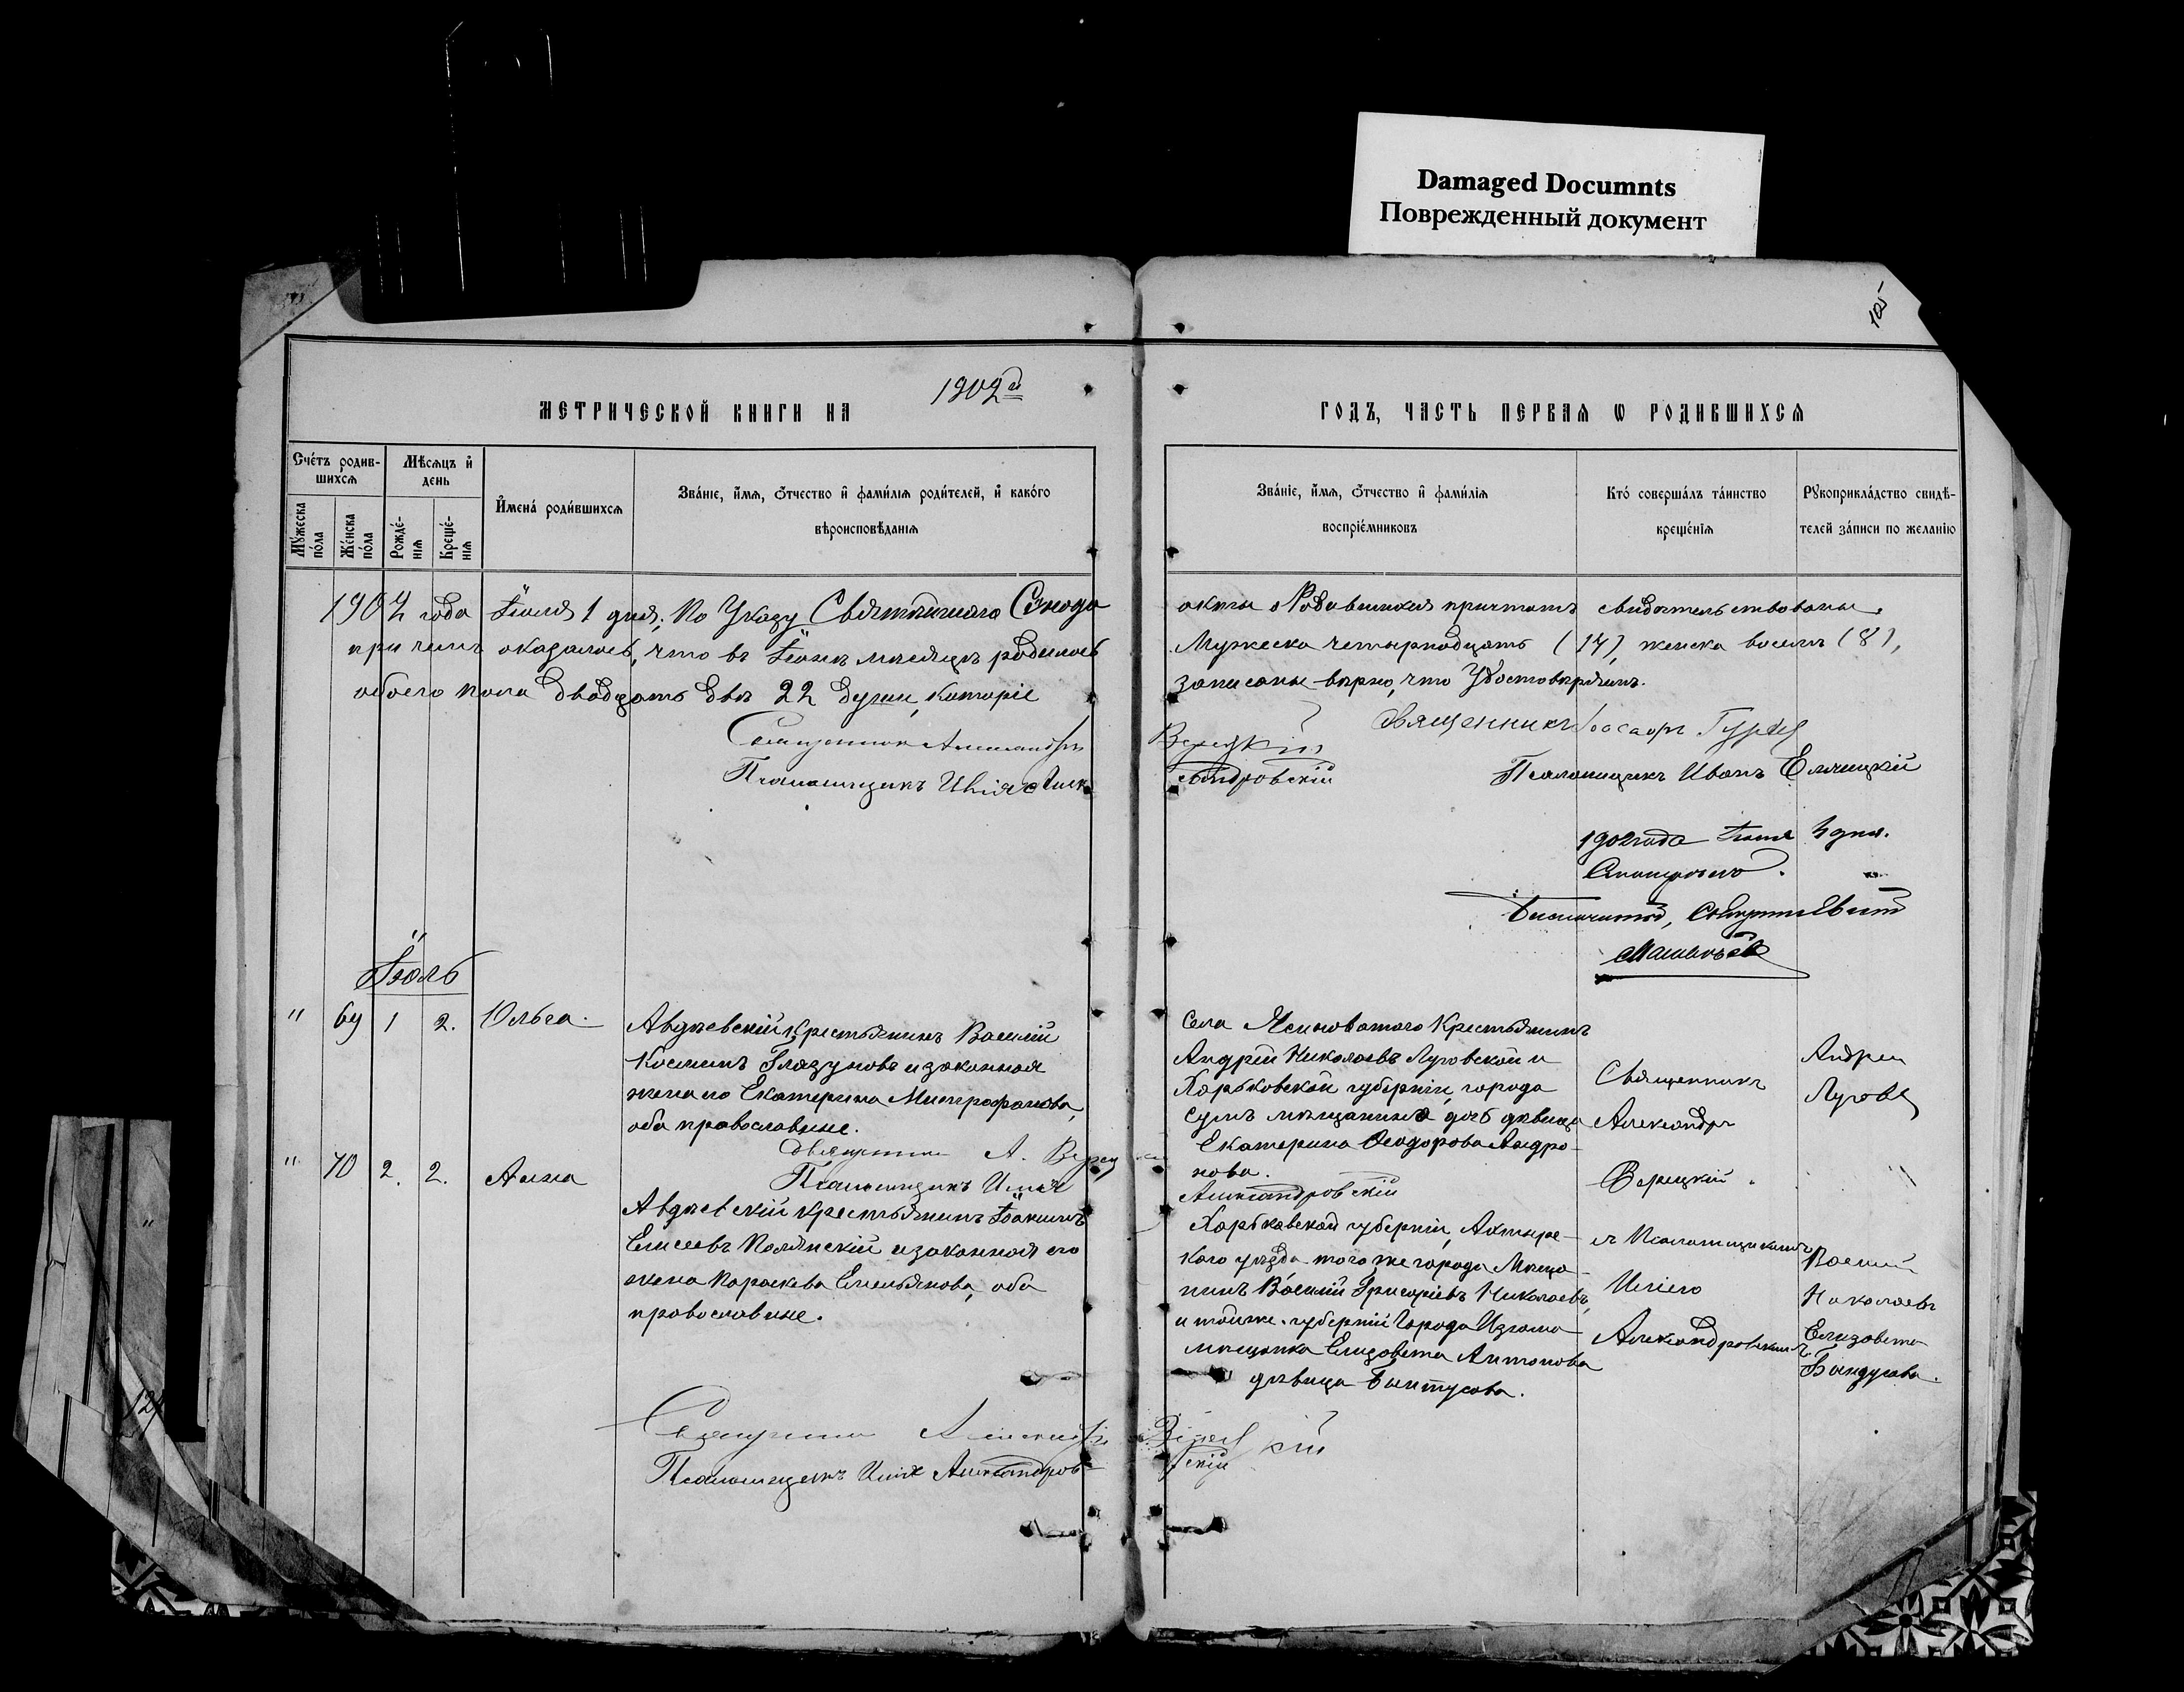 Damaged Documnts
Поврежденный документ
105
1902й
МЕТРИЧЕСКОЙ КНИГИ НА
ГОДЪ, ЧАСТЬ ПЕРВАЯ Ѡ РОДИВШИХСЯ
Счéтъ родив-
шихсѧ
Мꙋ́жеска
по́ла
Же́нска
по́ла
Мѣ́сѧцъ и҆
день
Рожде́-
нїѧ
Креще́-
нїѧ
И҆мена́ роди́вшихсѧ
Зва́нїе, и҆́мѧ, ѻ҆́тчество и҆ фами́лїѧ роди́телей, и҆ како́го
вѣроисповѣ́данїѧ
Зва́нїе, и҆́мѧ, ѻ҆́тчество и҆ фами́лїѧ
воспрїе́мниковъ
Кто́ соверша́лъ та́инство
креще́нїѧ
Рꙋкоприкла́дство свидѣ́-
телей за́писи по желанїю
1902 года Іюля 1 дня; По Указу Святѣйшаго Сѵнода
при чемъ оказалось, что въ Іюнѣ мѣсяцѣ родилось
обоего пола двадцать двѣ 22 души, которіе
Священник Александръ
Псаломщикъ Илія Алек
акты о Родившихся причтомъ свидѣтельствованы.
Мужеска четырнадцать (14), женска восемь (8),
записаны вѣрно, что Удостовѣряемъ.
Верецкій
сандровскій
Священникъ
Псаломщикъ Иванъ Еллицкій
1902 года Іюля 4 дня.
Іюль
" 69 1 2. Ольга.
Авдѣевскій крестьянинъ Василій
Косминъ Глазуновъ и законная
жена его Екатерина Митрофанова,
оба православные.
Священник А. Верец
Псаломщикъ Илія
Села Ясиноватаго Крестьянинъ
Андрей Николаевъ Луговской и
Харьковской губерніи, города
Сумъ мѣщанина дочь дѣвица
Екатерина Ѳеодорова Андро-
нова.
Александровскій
Священникъ
Александръ
Верецкій.
Андрей
Лугов
" 70 2. 2. Анна
Авдѣевскій крестьянинъ Іоакимъ
Елисеевъ Полянскій и законная его
жена Параскева Емельянова, оба
православные.
Харьковской губерніи, Ахтырс-
каго уѣзда, того же города Мѣща-
нинъ Василій Григоріевъ Николаевъ,
и тойже губерніи Города Изюма
мѣщанка Елизовета Антонова
дѣвица Бантусова.
съ Псаломщикомъ
Иліею
Александровскимъ
Василий
Николаевъ
Елизовета
Бандусова.
Священник Александръ Верецкій
Псаломщикъ Илія Александров-
скій
124